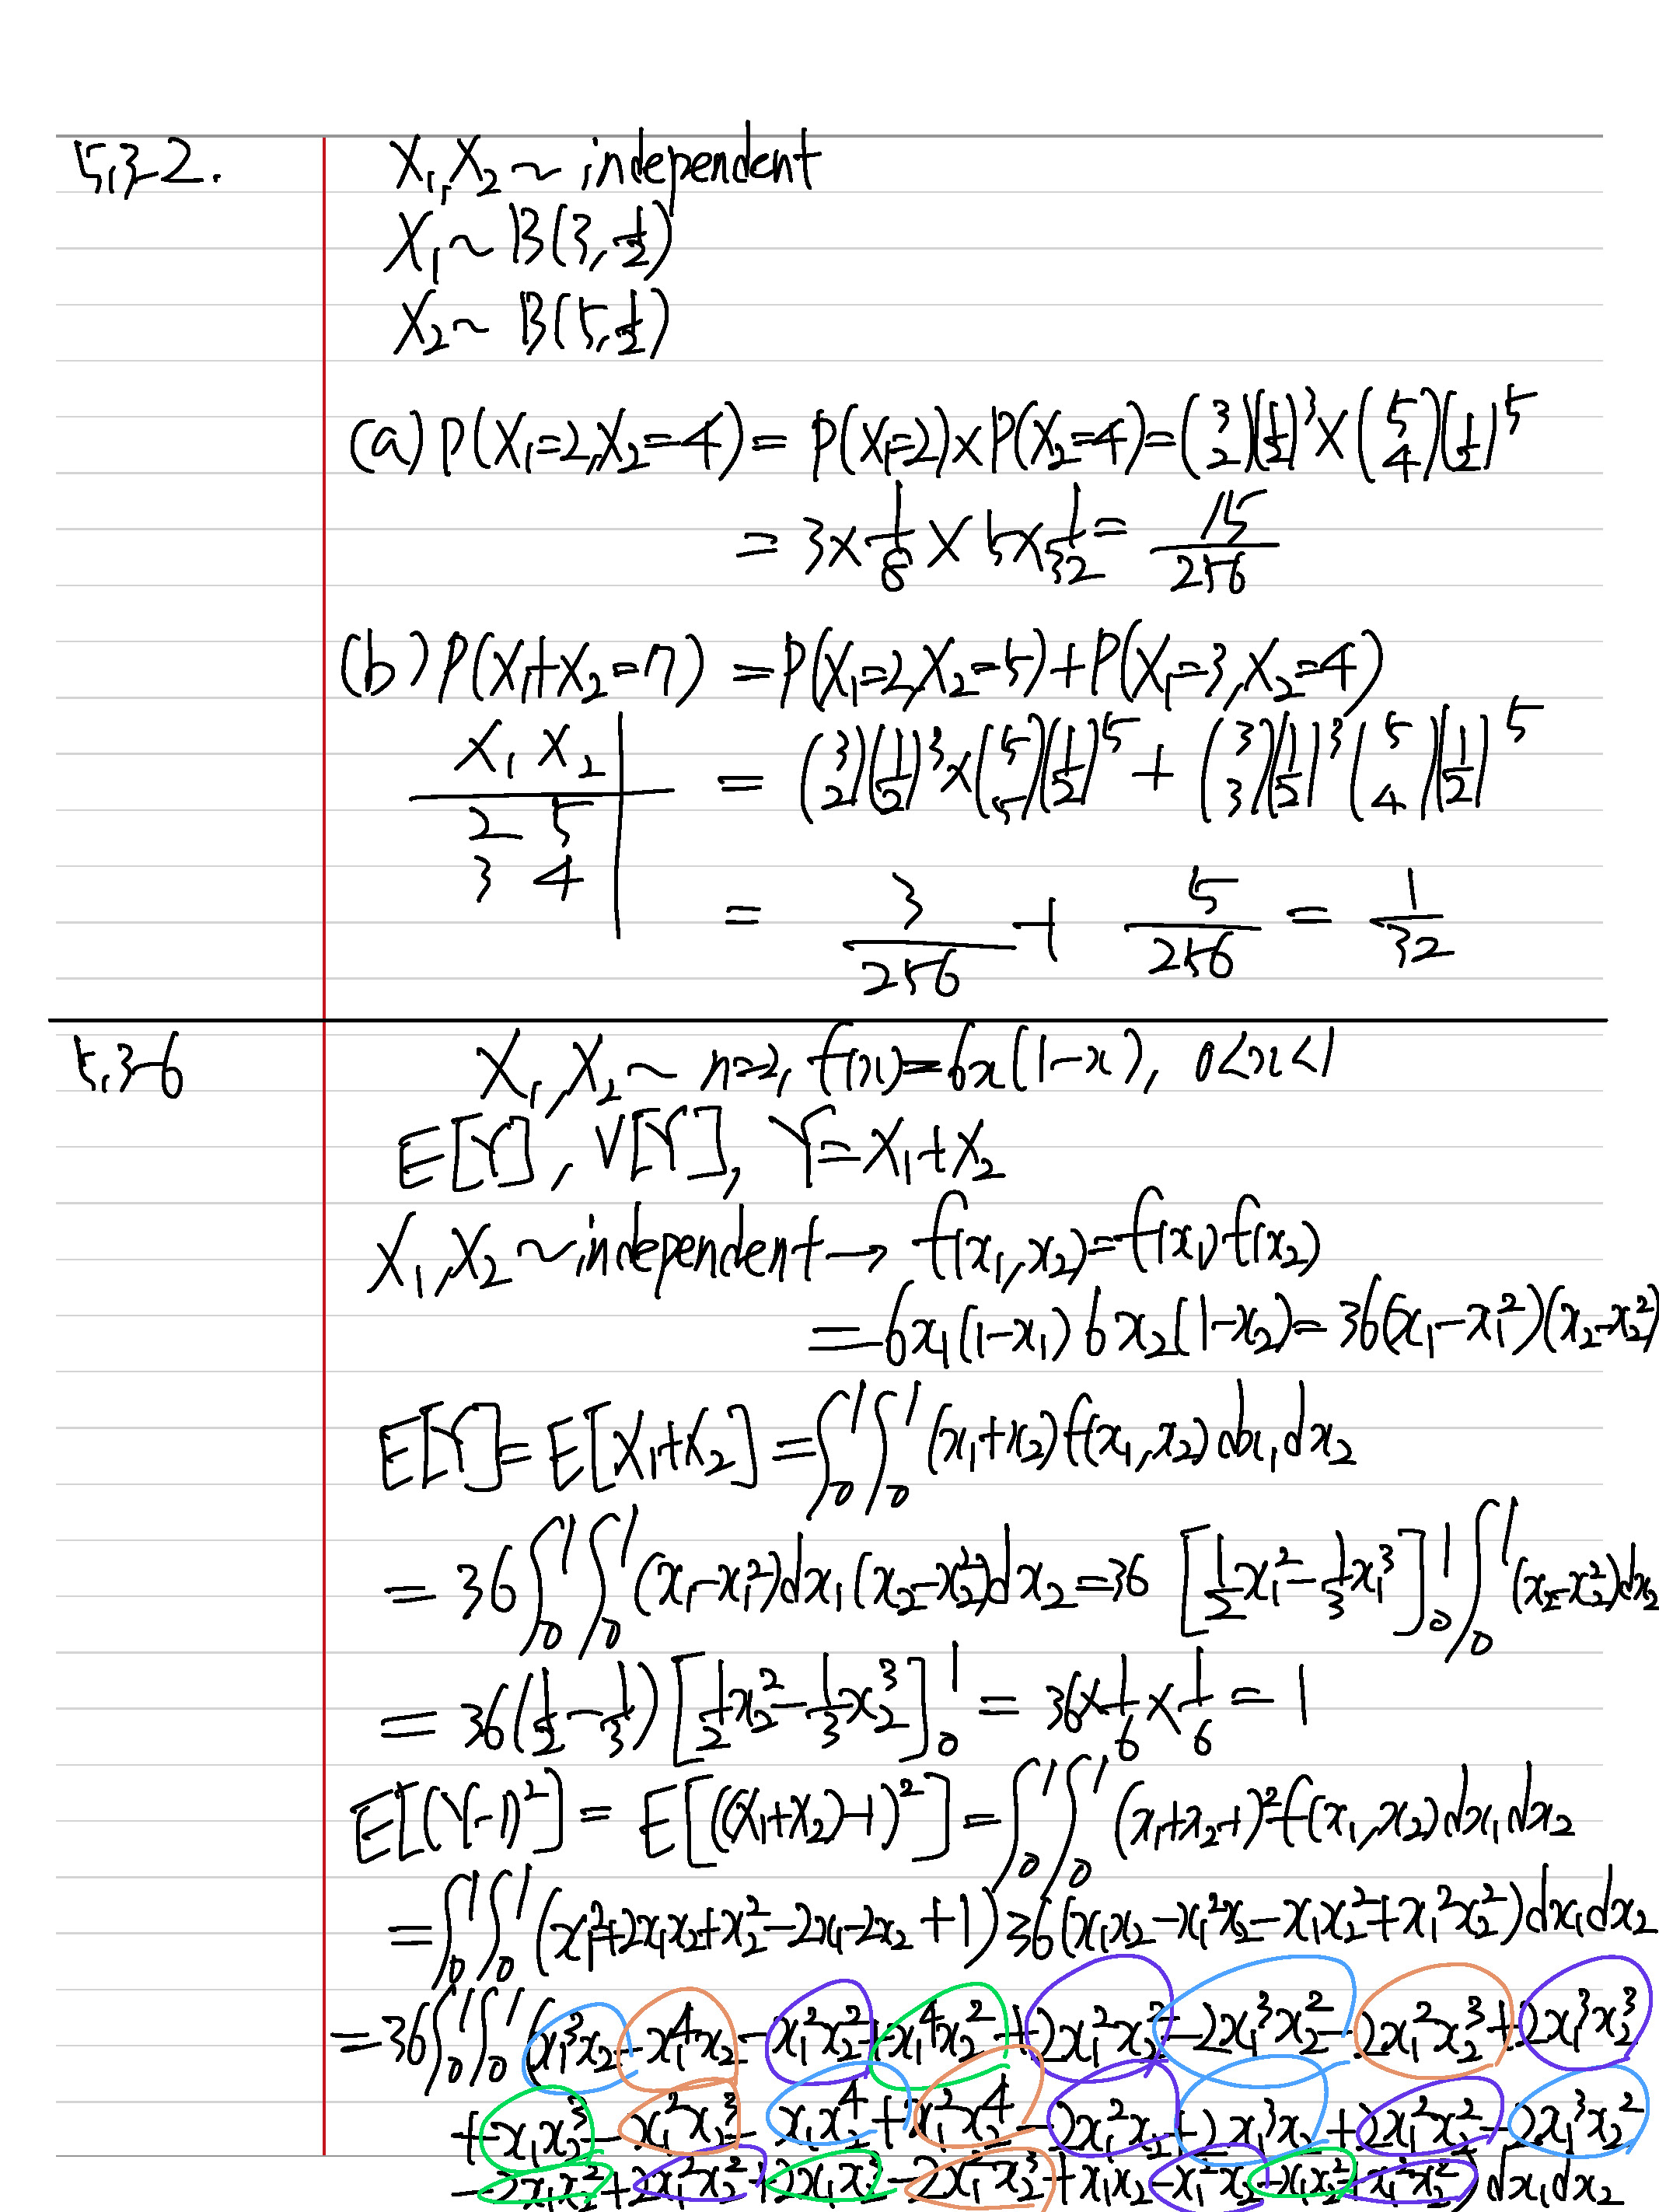 5.3-2.
X₁, X₂ ~ independent
X₁ ~ B(3, 1/2)
X₂ ~ B(5, 1/2)
(a) P(X₁=2, X₂=4) = P(X₁=2) × P(X₂=4) = (3 2)(1/2)³ × (5 4)(1/2)⁵
= 3 × 1/8 × 5 × 1/32 = 15/256
(b) P(X₁+X₂=7) = P(X₁=2, X₂=5) + P(X₁=3, X₂=4)
X₁ X₂
= (3 2)(1/2)³ × (5 5)(1/2)⁵ + (3 3)(1/2)³ (5 4)(1/2)⁵
2 5
3 4
= 3/256 + 5/256 = 1/32
5.3-6
X₁, X₂ ~ n=2, f(x)=6x(1-x), 0<x<1
E[Y], V[Y], Y=X₁+X₂
X₁, X₂ ~ independent → f(x₁, x₂)=f(x₁)f(x₂)
= 6x₁(1-x₁) 6x₂(1-x₂) = 36(x₁-x₁²)(x₂-x₂²)
E[Y] = E[X₁+X₂] = ∫₀¹∫₀¹ (x₁+x₂) f(x₁, x₂) dx₁ dx₂
= 36 ∫₀¹∫₀¹ (x₁-x₁²)dx₁ (x₂-x₂²)dx₂ = 36 [1/2 x₁² - 1/3 x₁³]₀¹ ∫₀¹ (x₂-x₂²)dx₂
= 36(1/2 - 1/3) [1/2 x₂² - 1/3 x₂³]₀¹ = 36 × 1/6 × 1/6 = 1
E[(Y-1)²] = E[((X₁+X₂)-1)²] = ∫₀¹∫₀¹ (x₁+x₂-1)² f(x₁, x₂) dx₁ dx₂
= ∫₀¹∫₀¹ (x₁²+2x₁x₂+x₂²-2x₁-2x₂+1) 36(x₁x₂-x₁²x₂-x₁x₂²+x₁²x₂²) dx₁ dx₂
= 36 ∫₀¹∫₀¹ (x₁³x₂ - x₁⁴x₂ - x₁²x₂² + x₁⁴x₂² + 2x₁²x₂² - 2x₁³x₂² - 2x₁²x₂³ + 2x₁³x₂³
+ x₁x₂³ - x₁²x₂³ - x₁x₂⁴ + x₁²x₂⁴ - 2x₁²x₂ + 2x₁³x₂ + 2x₁²x₂² - 2x₁³x₂²
- 2x₁x₂² + 2x₁²x₂² + 2x₁x₂³ - 2x₁²x₂³ + x₁x₂ - x₁²x₂ - x₁x₂² + x₁²x₂²) dx₁ dx₂